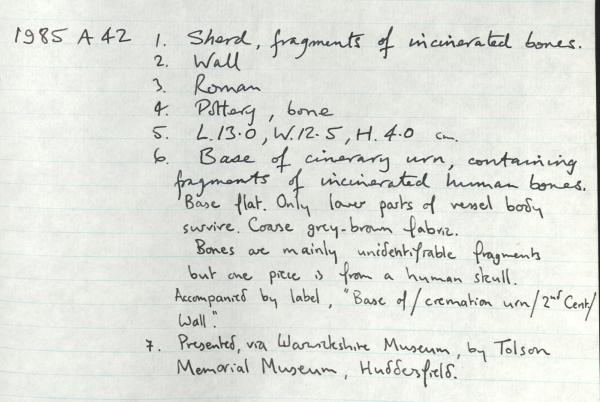 1985 A 42 1. Sherd, fragments of incinerated bones.
2. Wall
3. Roman
4. Pottery, bone
5. L.13.0, W.12.5, H. 4.0 cm.
6. Base of cinerary urn, containing
fragments of incinerated human bones.
Base flat. Only lower parts of vessel body
survive. Coarse grey-brown fabric.
Bones are mainly unidentifiable fragments
but one piece is from a human skull.
Accompanied by label, "Base of/cremation urn/2nd Cent/
Wall".
7. Presented, via Warwickshire Museum, by Tolson
Memorial Museum, Huddersfield.